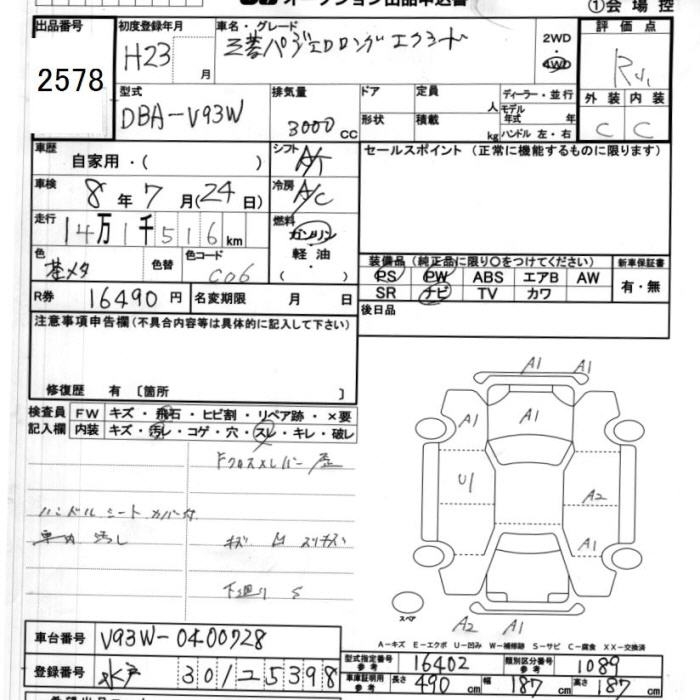 オークション出品申込書 ①会場控
出品番号 2578
初度登録年月 H23 月
車名・グレード 三菱パジェロロングエクシード
2WD・4WD
評価点
外装 C 内装 C
型式 DBA-V93W
排気量 3000CC
ドア 定員 人
形状 積載 kg
ディーラー・並行
モデル年式 年
ハンドル 左・右
車歴 自家用・( )
シフト A/T
車検 8年7月(24日)
冷房 A/C
走行 14万1千516km
燃料 ガソリン 軽油・( )
色 茶メタ 色替 色コード C06
R券 16490円 名変期限 月 日
セールスポイント (正常に機能するものに限ります)
装備品(純正品に限り○をつけてください) 新車保証書
PS PW ABS エアB AW 有・無
SR ナビ TV カワ
後日品
注意事項申告欄(不具合内容等は具体的に記入して下さい)
修復歴 有 〔箇所 〕
検査員記入欄
FW キズ・飛石・ヒビ割・リペア跡・×要
内装 キズ・汚レ・コゲ・穴・スレ・キレ・破レ
ハンドル シート カバー付
車内 汚し
下廻り S
A1 A1
A1 A1
U1 A2
A1
スペア
A2 A1
A-キズ E-エクボ U-凹み W-補修跡 S-サビ C-腐食 XX-交換済
車台番号 V93W-0400728
登録番号 水戸 301 そ 5398
型式指定番号 参考 16402 類別区分番号 参考 1089
車庫証明用 参考 長さ 490cm 幅 187cm 高さ 187cm